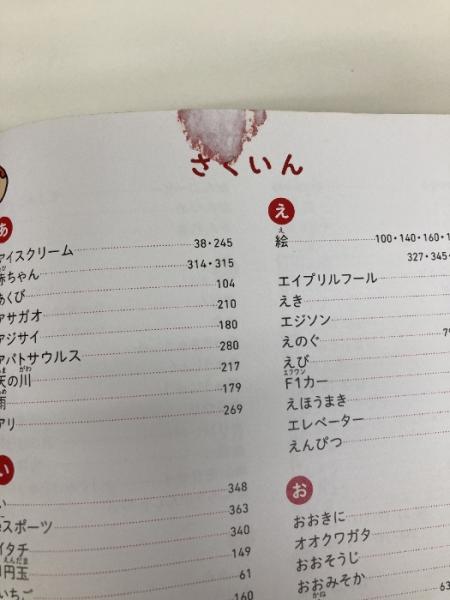 さくいん
あ
アイスクリーム 38・245
赤ちゃん 314・315
あくび 104
アサガオ 210
アジサイ 180
アパトサウルス 280
天の川 217
雨 179
アリ 269
い
348
eスポーツ 363
イタチ 340
1円玉 149
いちご 61
160
え
絵 100・140・160・1
327・345・
エイプリルフール
えき
エジソン
えのぐ
えび
エフワン
F1カー
えほうまき
エレベーター
えんぴつ
お
おおきに
オオクワガタ
おおそうじ
おおみそか 63